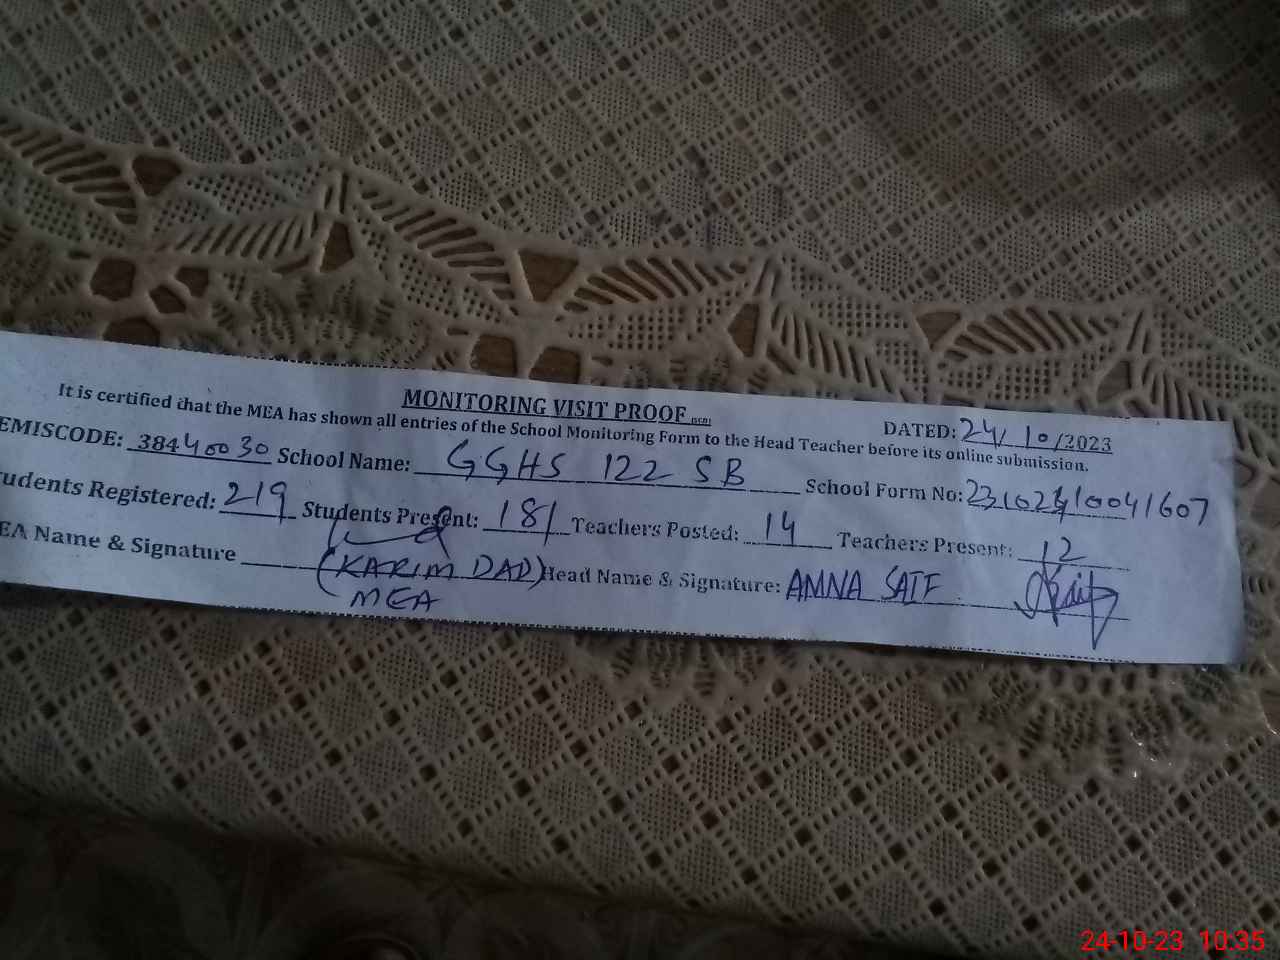 MONITORING VISIT PROOF
DATED: 24/10/2023
It is certified that the MEA has shown all entries of the School Monitoring Form to the Head Teacher before its online submission.
EMISCODE: 38440030 School Name: GGHS 122 SB School Form No: 23102410041607
tudents Registered: 219 Students Present: 181 Teachers Posted: 14 Teachers Present: 12
EA Name & Signature (KARIM DAD) Head Name & Signature: AMNA SAIF
MEA
24-10-23 10:35